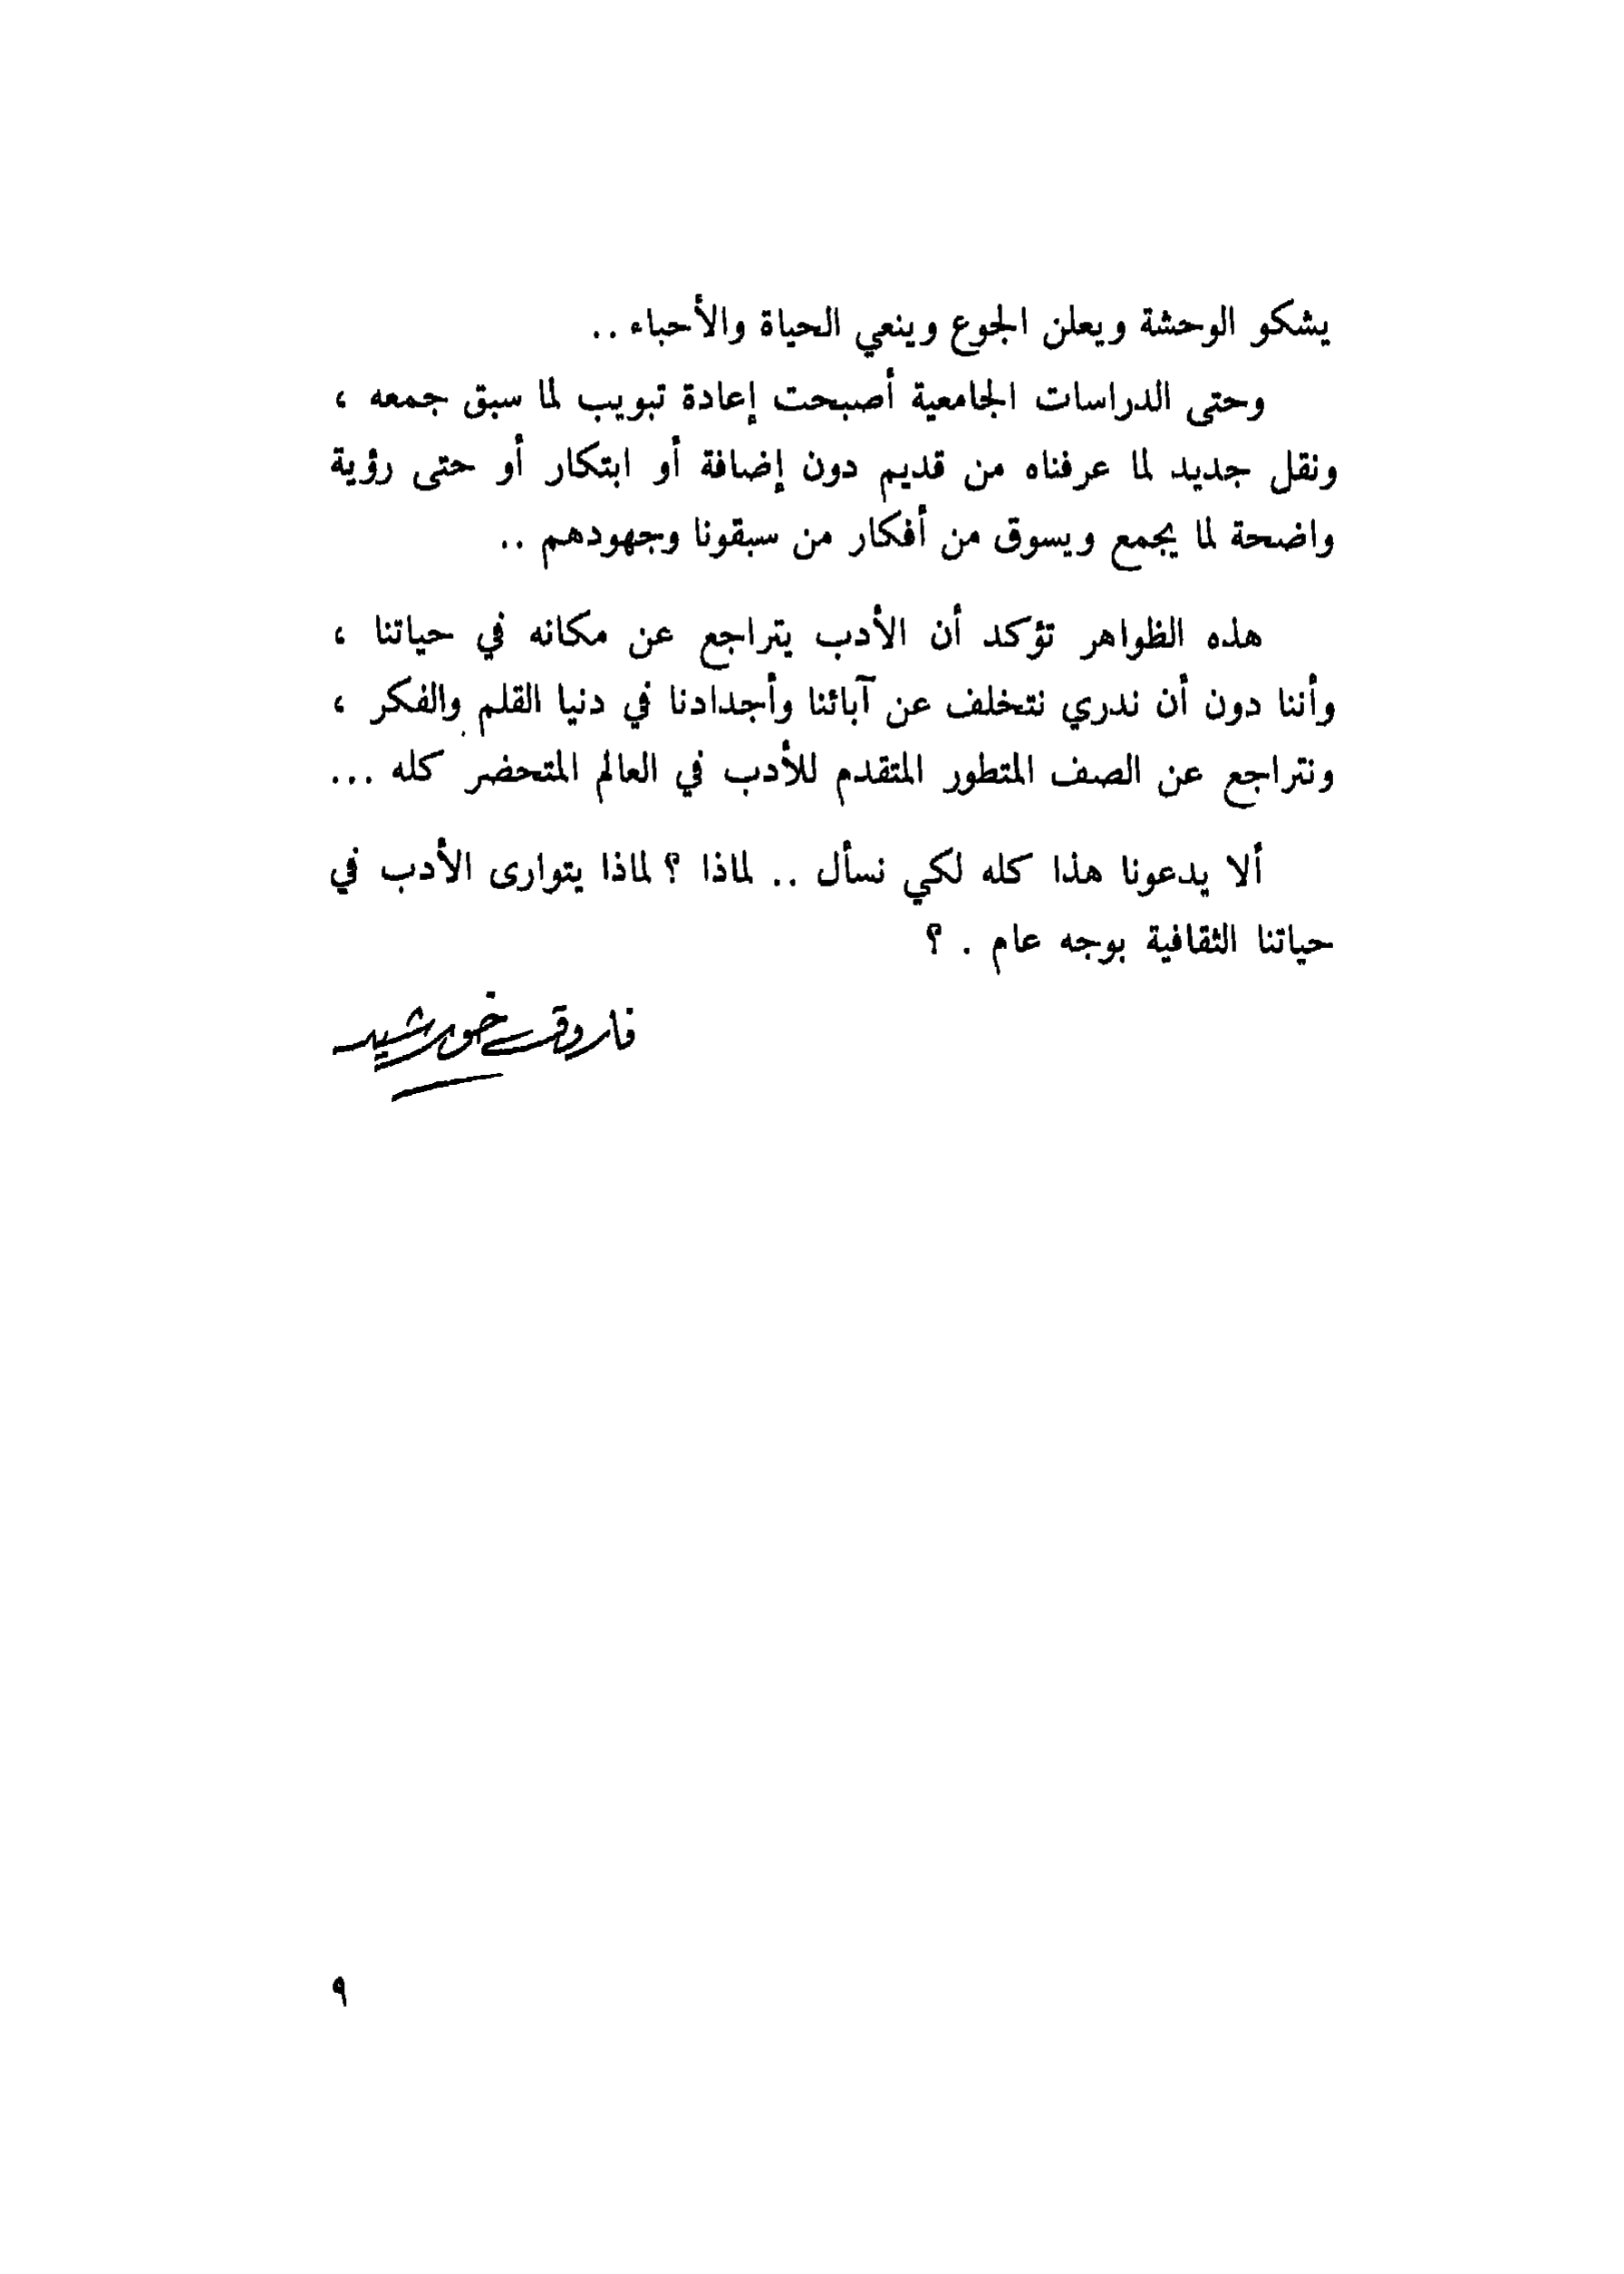 يشكو الوحشة ويعلن الجوع وينعي الحياة والأحباء ..
وحتى الدراسات الجامعية أصبحت إعادة تبويب لما سبق جمعه ،
ونقل جديد لما عرفناه من قديم دون إضافة أو ابتكار أو حتى رؤية
واضحة لما يجمع ويسوق من أفكار من سبقونا وجهودهم ..
هذه الظواهر تؤكد أن الأدب يتراجع عن مكانه في حياتنا ،
وأننا دون أن ندري نتخلف عن آبائنا وأجدادنا في دنيا القلم والفكر ،
ونتراجع عن الصف المتطور المتقدم للأدب في العالم المتحضر كله ...
ألا يدعونا هذا كله لكي نسأل .. لماذا ؟ لماذا يتوارى الأدب في
حياتنا الثقافية بوجه عام . ؟
فاروق خورشيد
٩